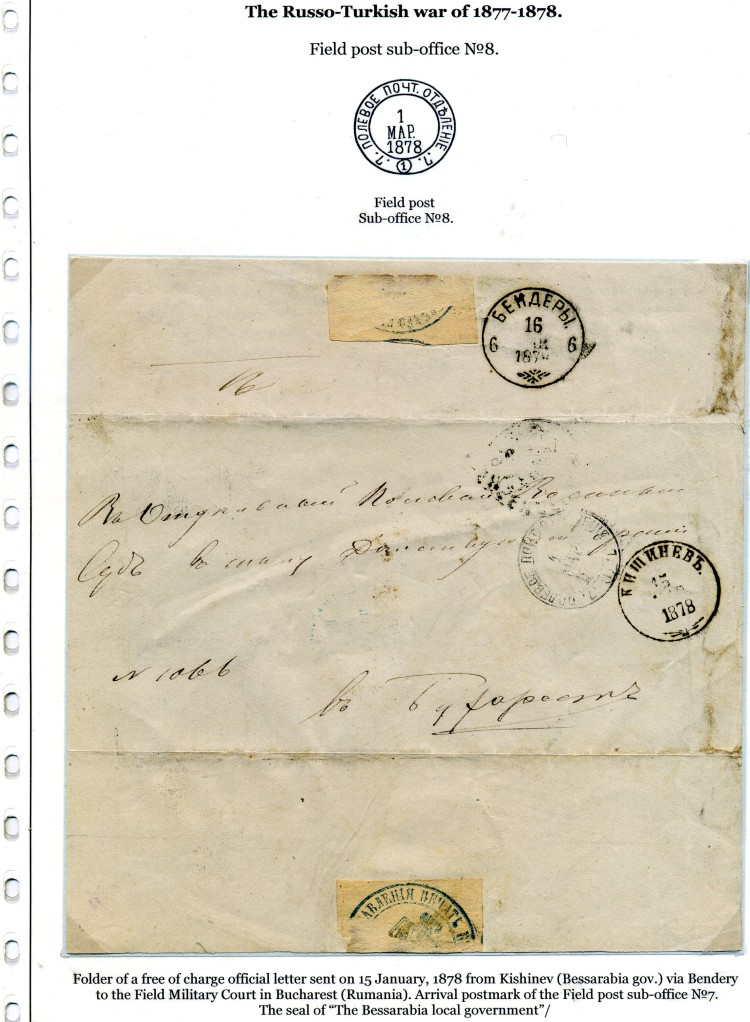 The Russo-Turkish war of 1877-1878.
Field post sub-office №8.
.7. ПОЛЕВОЕ ПОЧТ. ОТДѢЛЕНІЕ .7.
1
МАР.
1878
1
Field post
Sub-office №8.
БЕНДЕРЫ.
16
6 6
187
Въ Отдельный Полевой Военный
Судъ въ тылу Действующей Армiи
ПОЛЕВОЕ
КИШИНЕВЪ.
15
1878
N 1066
въ Бухарестъ
АВЛЕНІЯ ПЕЧАТЬ
Folder of a free of charge official letter sent on 15 January, 1878 from Kishinev (Bessarabia gov.) via Bendery
to the Field Military Court in Bucharest (Rumania). Arrival postmark of the Field post sub-office №7.
The seal of “The Bessarabia local government”/